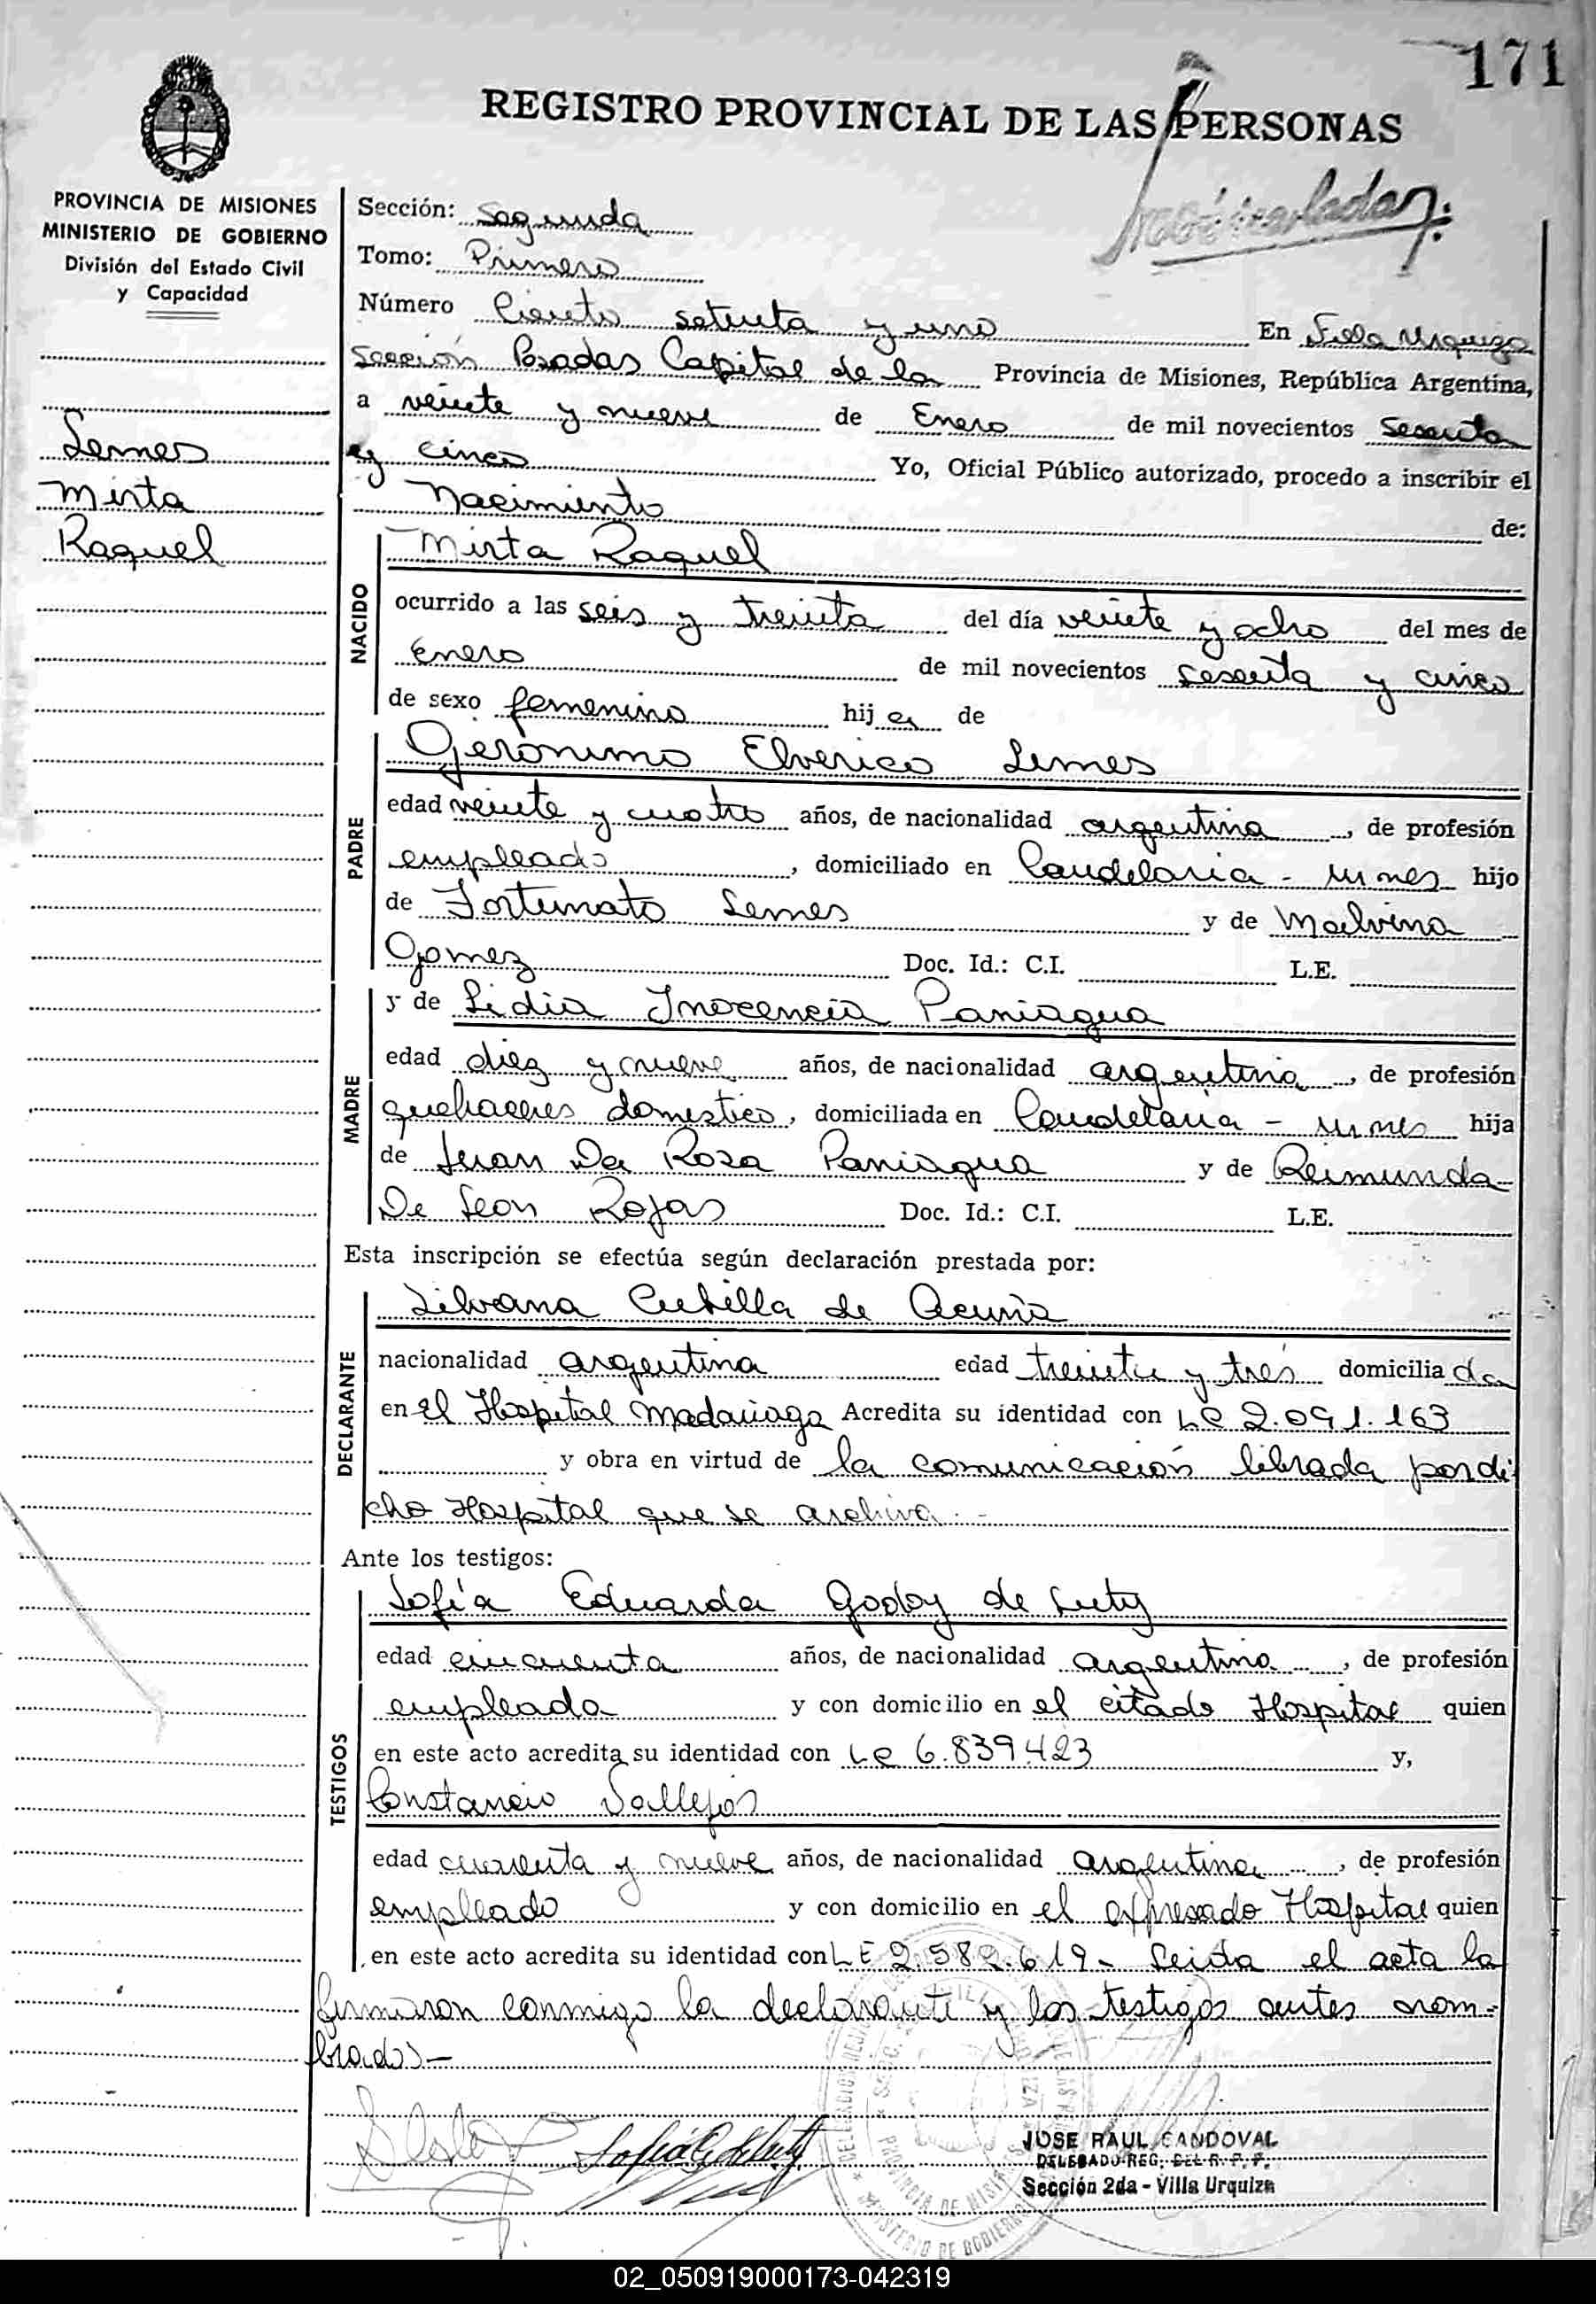 171
REGISTRO PROVINCIAL DE LAS PERSONAS
PROVINCIA DE MISIONES
MINISTERIO DE GOBIERNO
División del Estado Civil
y Capacidad
Lemes
Mirta
Raquel
Sección: Segunda
Tomo: Primero
Número Ciento setenta y uno En Villa Urquiza
Sección Posadas Capital de la Provincia de Misiones, República Argentina,
a veinte y nueve de Enero de mil novecientos Sesenta
y cinco Yo, Oficial Público autorizado, procedo a inscribir el
Nacimiento de:
NACIDO
Mirta Raquel
ocurrido a las seis y treinta del día veinte y ocho del mes de
Enero de mil novecientos sesenta y cinco
de sexo femenino hija de
PADRE
Geronimo Elverico Lemes
edad veinte y cuatro años, de nacionalidad argentina, de profesión
empleado, domiciliado en Candelaria - Mnes hijo
de Fortunato Lemes y de Malvina
Gomez Doc. Id.: C.I. L.E.
MADRE
y de Lidia Inocencia Paniagua
edad diez y nueve años, de nacionalidad argentina, de profesión
quehaceres domestico, domiciliada en Candelaria - Mnes hija
de Juan Da Rosa Paniagua y de Reimunda
De Leon Rojas Doc. Id.: C.I. L.E.
Esta inscripción se efectúa según declaración prestada por:
DECLARANTE
Silvana Cubilla de Acuña
nacionalidad argentina edad treinta y tres domiciliada
en el Hospital Madariaga Acredita su identidad con LC 2.091.163
y obra en virtud de la comunicación librada por di
cho Hospital que se archiva.-
Ante los testigos:
TESTIGOS
Sofía Eduarda Godoy de Luty
edad cincuenta años, de nacionalidad argentina, de profesión
empleada y con domicilio en el citado Hospital quien
en este acto acredita su identidad con LC 6.839.423 y,
Constancio Vallejos
edad cuarenta y nueve años, de nacionalidad argentina, de profesión
empleado y con domicilio en el expresado Hospital quien
en este acto acredita su identidad con LE 2.582.619- Leida el acta la
firmaron conmigo la declarante y los testigos antes nom-
brados-
JOSE RAUL SANDOVAL
DELEGADO REG. DEL R. P. P.
Sección 2da - Villa Urquiza
02_050919000173-042319